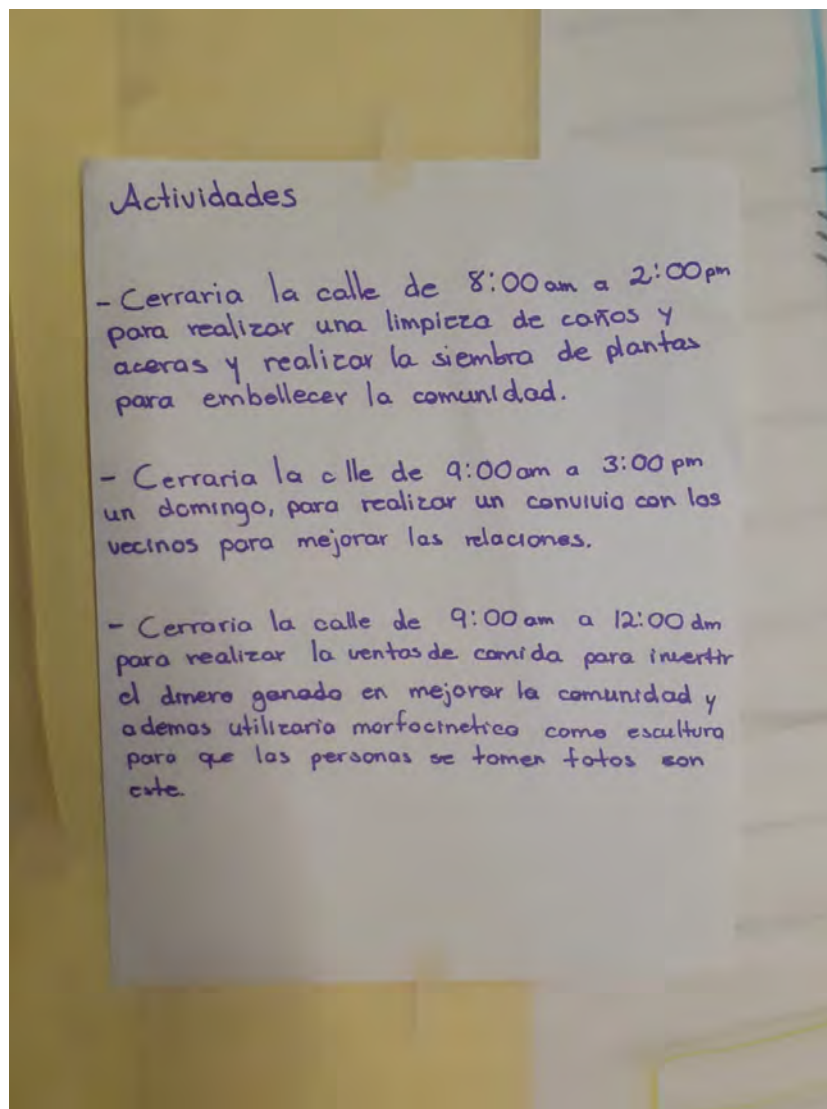 Actividades
- Cerraria la calle de 8:00 am a 2:00 pm
para realizar una limpieza de caños y
aceras y realizar la siembra de plantas
para embellecer la comunidad.
- Cerraria la c lle de 9:00 am a 3:00 pm
un domingo, para realizar un convivio con los
vecinos para mejorar las relaciones.
- Cerraria la calle de 9:00 am a 12:00 dm
para realizar la ventas de comida para invertir
el dinero ganado en mejorar la comunidad y
ademas utilizaria morfocinetico como escultura
para que las personas se tomen fotos con
este.